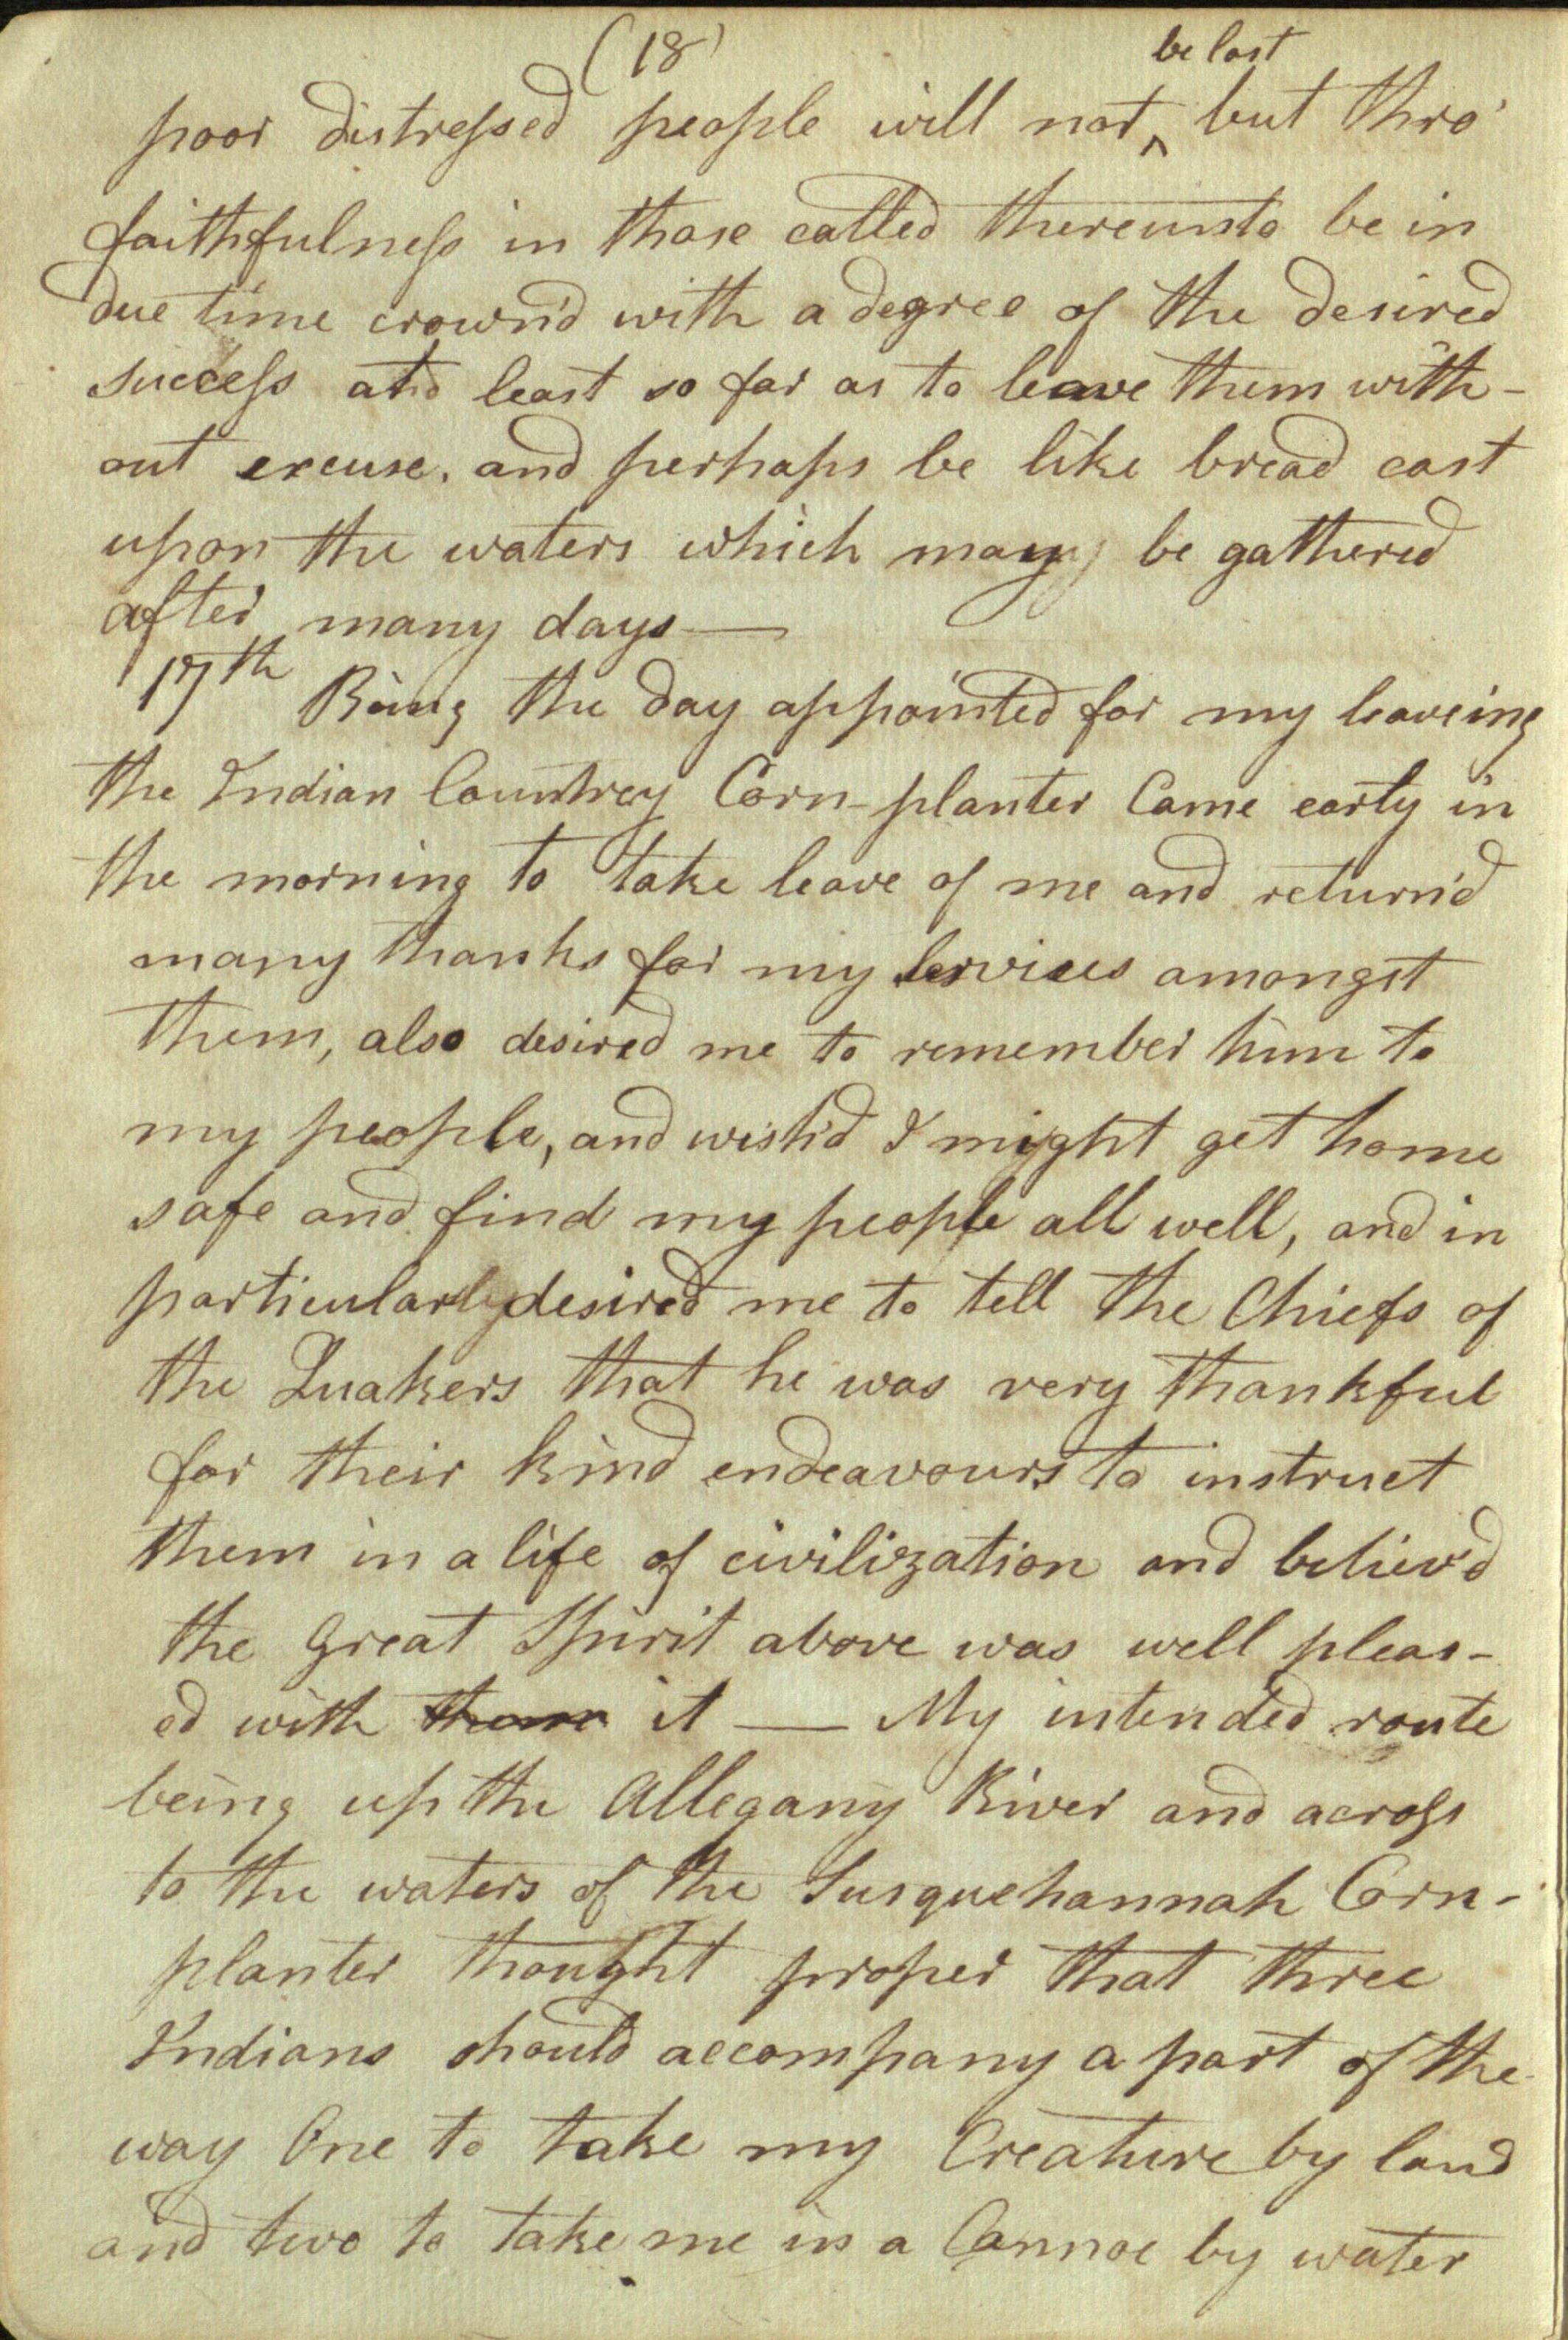 (18)
be lost
poor distressed people will not ‸ but thro'
faithfulness in those called thereunto be in
due time crown'd with a degree of the desired
success at least so far as to leave them with-
out excuse, and perhaps be like bread cast
upon the waters which may be gathered
after many days —
17th Being the day appointed for my leaveing
the Indian Countrey Corn-planter Came early in
the morning to take leave of me and return'd
many thanks for my services amongst
them, also desired me to remember him to
my people, and wish'd I might get home
safe and find my people all well, and in
particularly desired me to tell the Chiefs of
the Quakers that he was very thankful
for their kind endeavours to instruct
them in a life of civilization and believ'd
the Great Spirit above was well pleas-
ed with them it — My intended route
being up the Allegany River and across
to the waters of the Susquehannah Corn-
planter thought proper that three
Indians should accompany a part of the
way One to take my Creature by land
and two to take me in a Cannoe by water